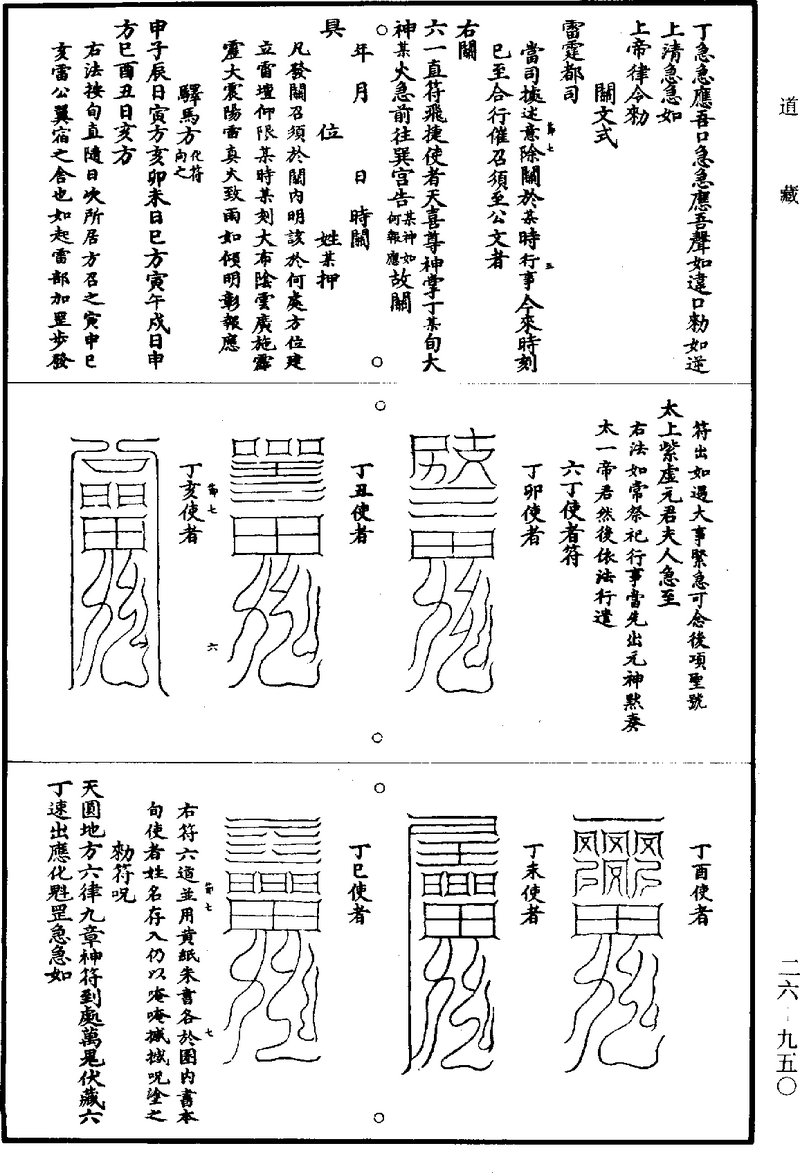 道藏
丁急急應吾口急急應吾聲如違口勑如逆
上清急急如
上帝律令勑
關文式
雷霆都司
當司據述意除關於某時行事今來時刻
已至合行催召須至公文者
右關
六一直符飛捷使者天喜尊神掌丁某旬大
神某火急前往巽宮告某神如何報應故關
年月日時關
具位姓某押
凡發關召須於關內明該於何處方位建
立雷壇仰限某時某刻大布陰雲廣施霹
靂大震陽雷真火致雨如傾明彰報應
驛馬方化符向之
申子辰日寅方亥卯未日巳方寅午戌日申
方巳酉丑日亥方
右法按旬直隨日次所居方召之寅申巳
亥雷公翼宿之舍也如起雷部加罡步發
第七
五
符出如遇大事緊急可念後項聖號
太上紫虛元君夫人急至
右法如常祭祀行事當先出元神默奏
太一帝君然後依法行遣
六丁使者符
丁卯使者
丁丑使者
丁亥使者
第七
六
丁酉使者
丁未使者
丁巳使者
右符六道並用黃紙朱書各於圈內書本
旬使者姓名存入仍以唵唵摵摵呪塗之
勑符呪
天圓地方六律九章神符到處萬鬼伏藏六
丁速出應化魁罡急急如
第七
七
二六－九五〇